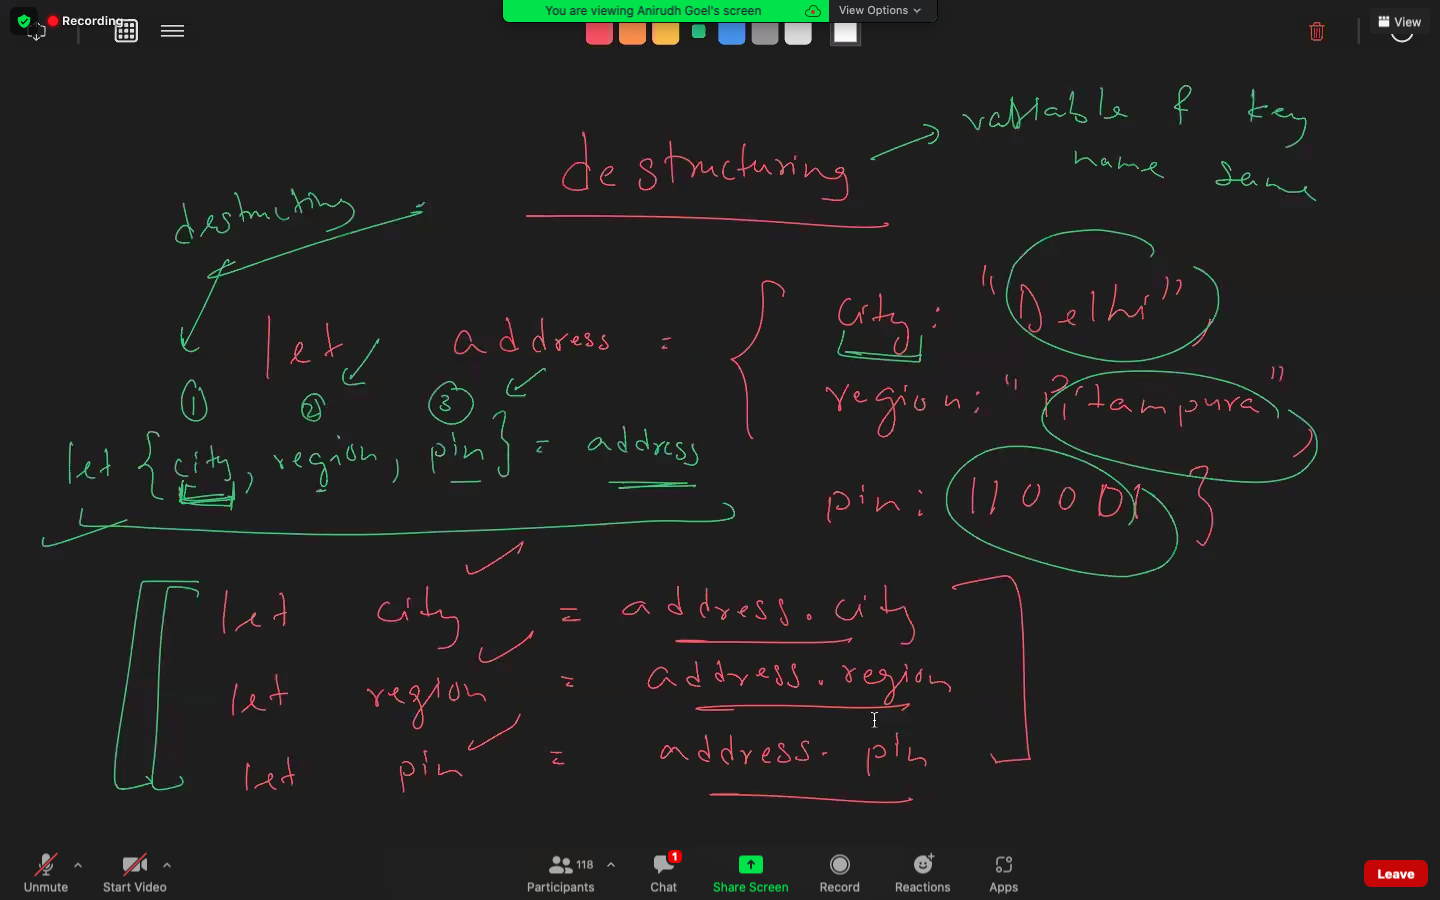 Recording
You are viewing Anirudh Goel's screen
View Options
View
variable & key
name same
destructuring
destructing
let address = { city: "Delhi",
region: "Pitampura",
pin: 110001 }
① ② ③
let { city, region, pin } = address
let city = address.city
let region = address.region
let pin = address.pin
118
1
Unmute
Start Video
Participants
Chat
Share Screen
Record
Reactions
Apps
Leave